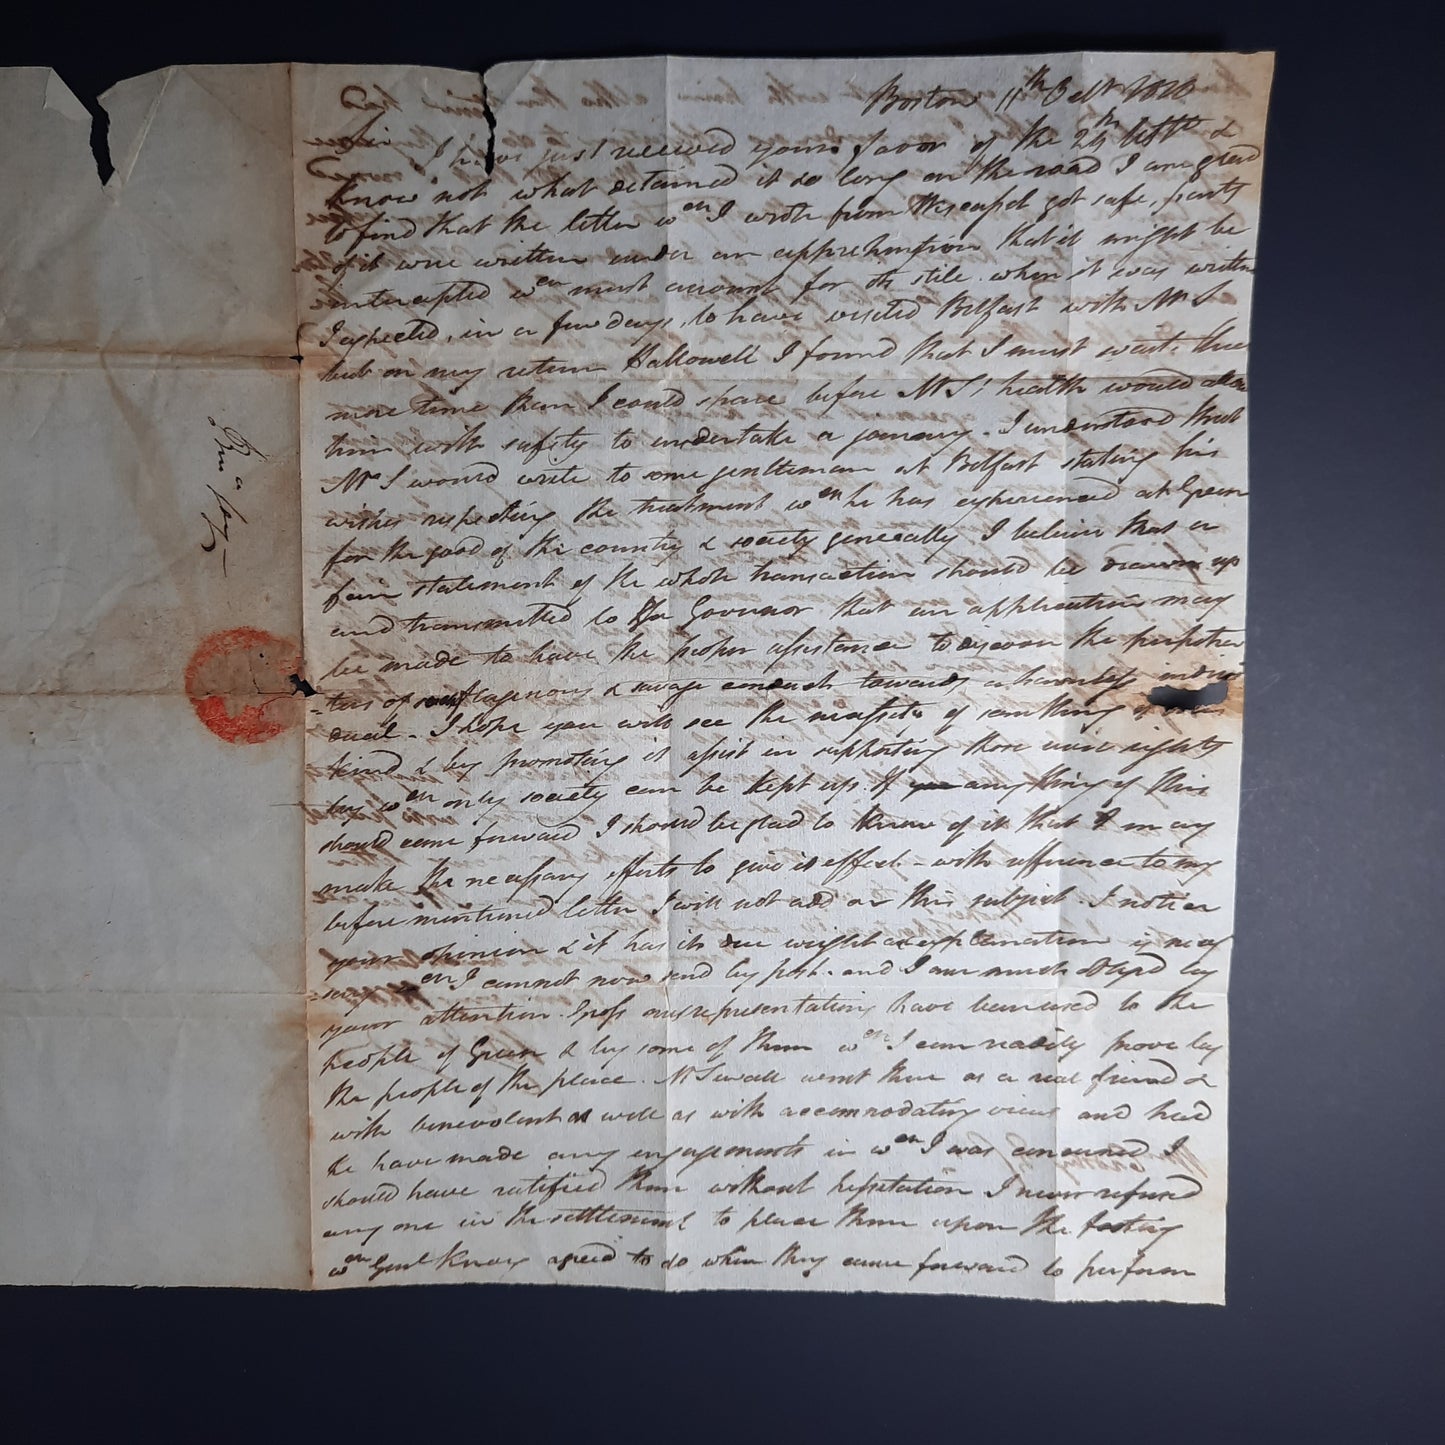 Boston 11th Octr 1810
Sir
I have just received yours favor of the 24th Septr &
know not what detained it so long on the road I am glad
to find that the letter wch I wrote from got safe, parts
of it were written under an apprehension that it might be
intercepted wch must account for its stile. when it was written
I expected, in a few days, to have visited Belfast with Mr S
but on my return Hallowell I found that I must wait
more time than I could spare before Mr S' health would allow
him with safety to undertake a journey. I understood that
Mr S would write to some gentleman at Belfast stating his
wishes respecting the treatment wch he has experienced at Green
for the good of the country & society generally I believe that a
fair statement of the whole transaction should be drawn up
and transmitted to the Governor that an application may
be made to have the proper assistance to discover the perpetra
-tors of such flagenous & savage conduct towards a harmless indivi
dual. I hope you will see the necessity of something of this
kind & by promoting it assist in supporting those civil rights
by wch only society can be kept up. If any thing of this
should come forward I should be glad to know of it that I may
make the necessary efforts to give it effect - with reference to my
before mentioned letter I will not add on this subject. I notice
your opinion & it has its due weight explanation
wch I cannot now send by post. and I am much obliged by
your attention. Gross misrepresentations have been used to the
people of Green & by some of them wch I can readily prove by
the people of the place. Mr Sewall went there as a real friend &
with benevolent as well as with accommodating views and had
he have made any engagements in wch I was concerned I
should have ratified them without hesitation I never refused
any one in the settlement to place them upon the footing
wch Genl Knox agreed to do when they came forward to perform
Prus pay —